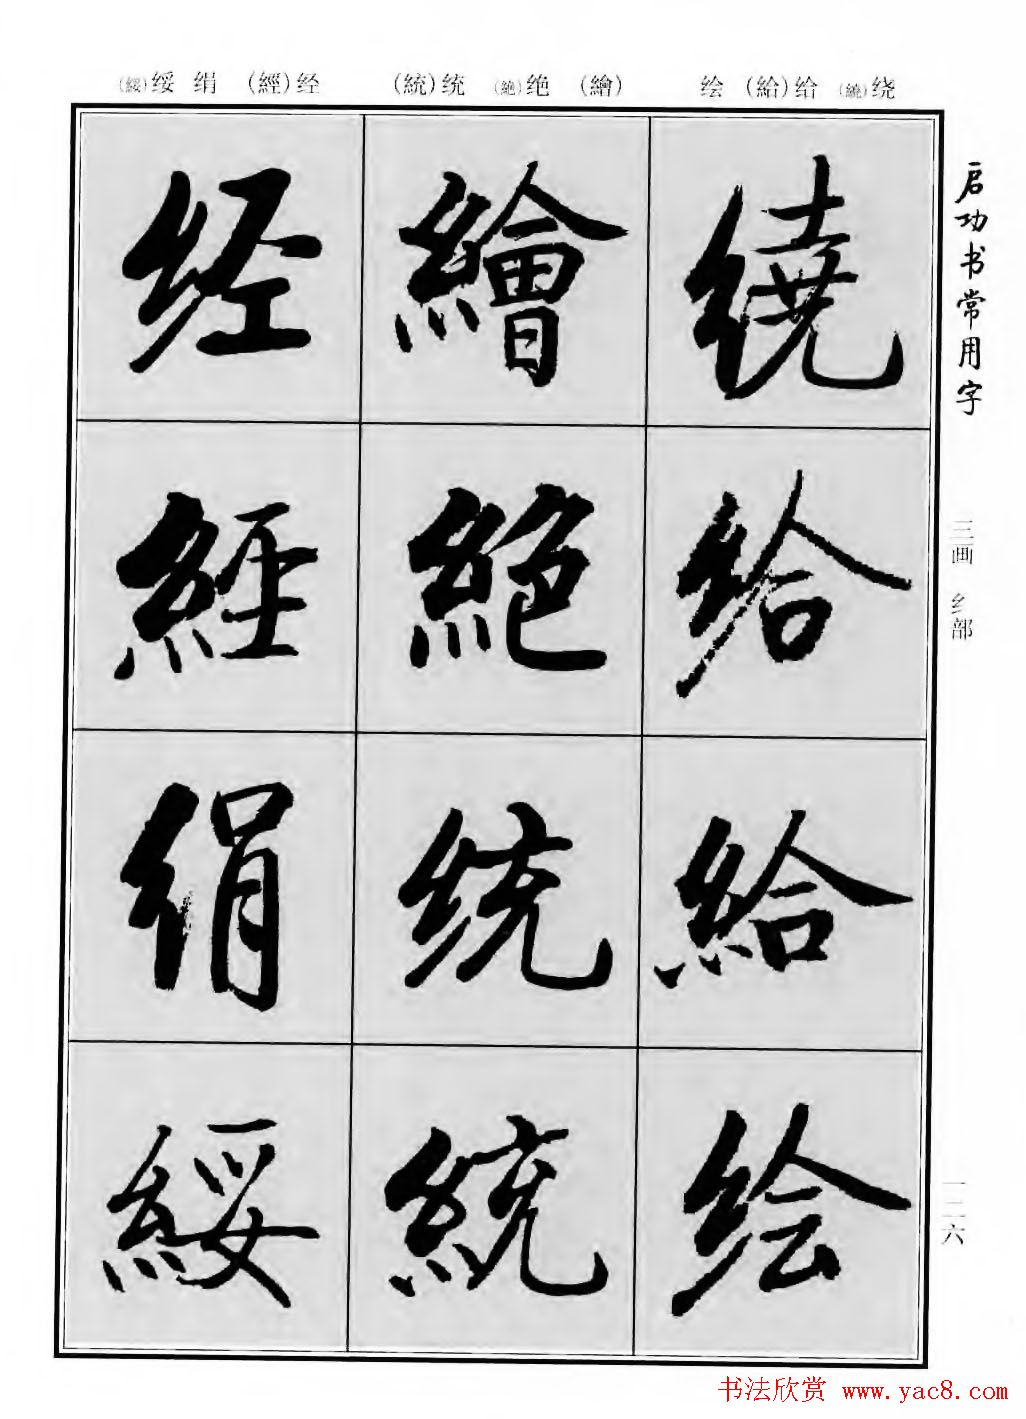 (綏)绥 绢 (經)经 (統)统 (絶)绝 (繪) 绘 (給)给 (繞)绕
启功书常用字
三画 纟部
一二六
繞
给
給
绘
繪
絶
统
統
经
經
绢
綏
书法欣赏 www.yac8.com